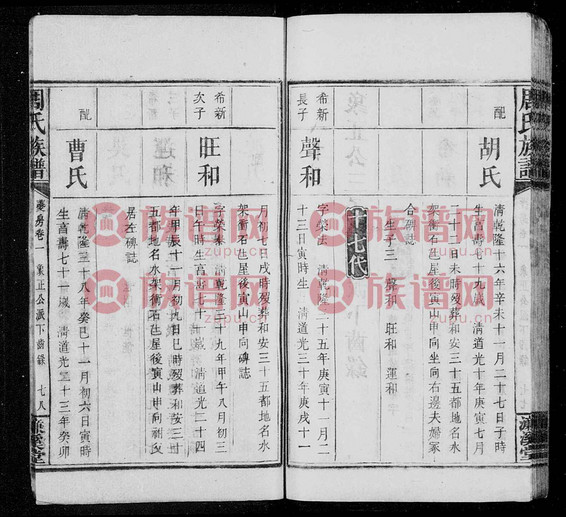 周氏族譜
配
胡氏
清乾隆十六年辛未十一月二十七日子時
生高壽七十九歲 清道光十年庚寅七月
二十二日未時歿葬和安三十五都地名水
架衝石芑星屋後寅山申向坐向右邊夫婦冢
合碑誌
生子三 聲和 旺和 運和
七代
希新
長子
聲和
字榮法 清乾隆三十五年庚寅十一月二
十三日寅時生 清道光三十年庚戌十一
月初七日戌時歿葬和安三十五都地名水
架衝石芑星屋後寅山申向碑誌
希新
次子
旺和
字榮泰 清乾隆三十九年甲午八月初三
日午時生高壽七十一歲 清道光二十四
年甲辰十一月初九日巳時歿葬和安三十
五都地名水架衝石芑星屋後寅山申向祖冢
居左碑誌
配
曹氏
清乾隆三十八年癸巳十一月初六日寅時
生高壽七十一歲 清道光二十三年癸卯
周氏族譜
房卷一
象正公派下齒錄
七八
濂溪堂
族譜网
zupu.cn